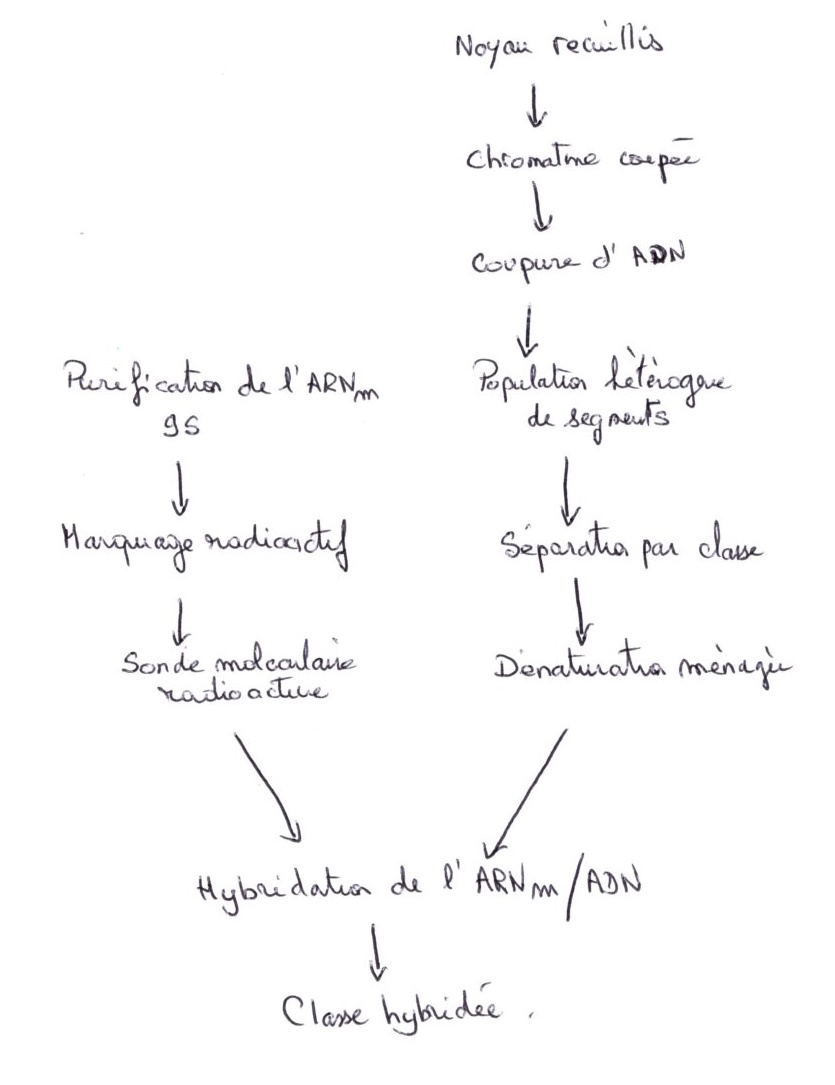 Noyau recuillis
Chromatine coupée
Coupure d'ADN
Purification de l'ARNm
9S
Population hétérogène
de segments
Marquage radioactif
Séparation par classe
Sonde moleculaire
radioactive
Dénaturation ménagée
Hybridation de l'ARNm/ADN
Classe hybridée.